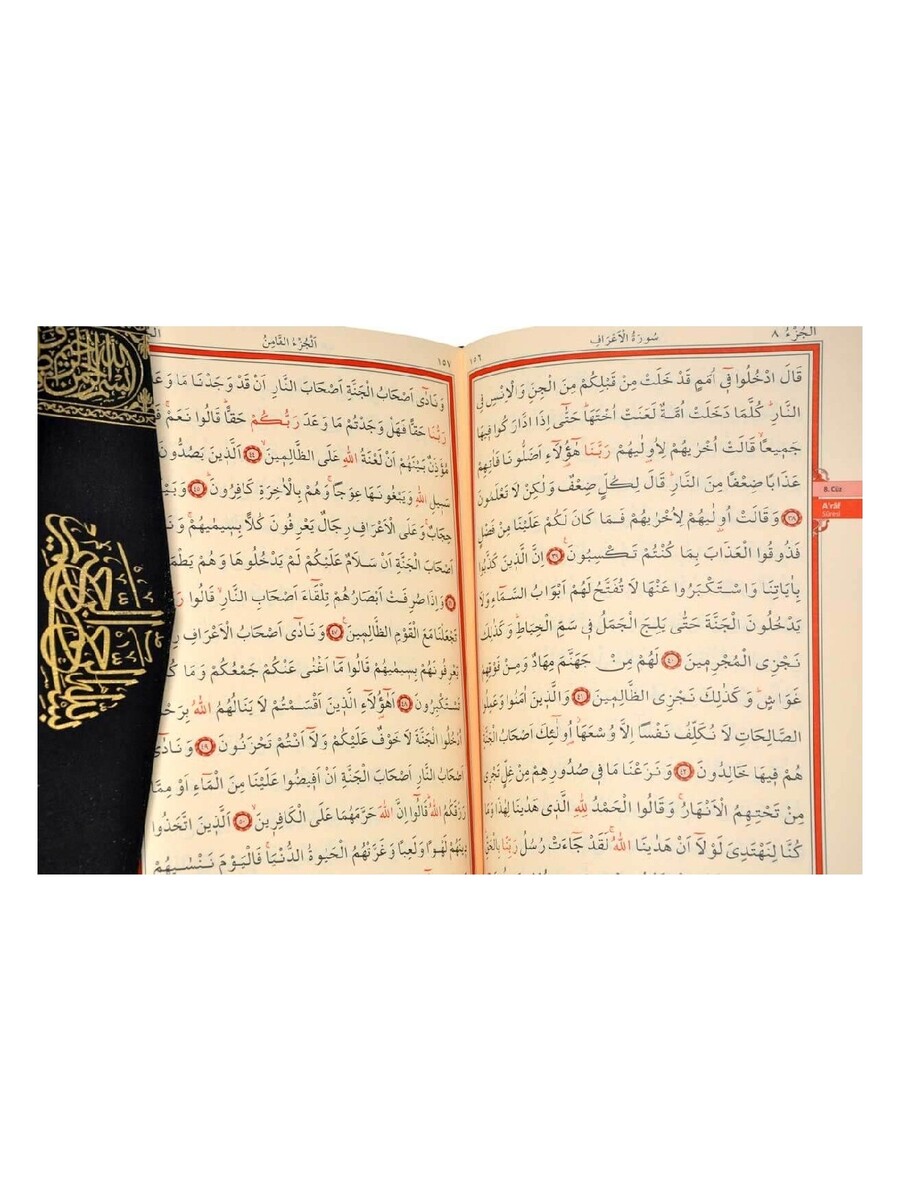 الجزء ٨
سورة الأعراف
١٥٦
8. Cüz
A'râf
Sûresi
قَالَ ادْخُلُوا فٖٓي اُمَمٍ قَدْ خَلَتْ مِنْ قَبْلِكُمْ مِنَ الْجِنِّ وَالْاِنْسِ فِي
النَّارِۜ كُلَّمَا دَخَلَتْ اُمَّةٌ لَعَنَتْ اُخْتَهَاۜ حَتّٰٓى اِذَا ادَّارَكُوا فٖيهَا
جَمٖيعًاۙ قَالَتْ اُخْرٰيهُمْ لِاُولٰيهُمْ رَبَّنَا هٰٓؤُ۬لَٓاءِ اَضَلُّونَا فَاٰتِهِمْ
عَذَابًا ضِعْفًا مِنَ النَّارِۜ قَالَ لِكُلٍّ ضِعْفٌ وَلٰكِنْ لَا تَعْلَمُونَ
﴿٣٨﴾ وَقَالَتْ اُو۫لٰيهُمْ لِاُخْرٰيهُمْ فَمَا كَانَ لَكُمْ عَلَيْنَا مِنْ فَضْلٍ
فَذُوقُوا الْعَذَابَ بِمَا كُنْتُمْ تَكْسِبُونَ۟ ﴿٣٩﴾ اِنَّ الَّذٖينَ كَذَّبُوا
بِاٰيَاتِنَا وَاسْتَكْبَرُوا عَنْهَا لَا تُفَتَّحُ لَهُمْ اَبْوَابُ السَّمَٓاءِ وَلَا
يَدْخُلُونَ الْجَنَّةَ حَتّٰى يَلِجَ الْجَمَلُ فٖي سَمِّ الْخِيَاطِۜ وَكَذٰلِكَ
نَجْزِي الْمُجْرِمٖينَ ﴿٤٠﴾ لَهُمْ مِنْ جَهَنَّمَ مِهَادٌ وَمِنْ فَوْقِهِمْ
غَوَاشٍۜ وَكَذٰلِكَ نَجْزِي الظَّالِمٖينَ ﴿٤١﴾ وَالَّذٖينَ اٰمَنُوا وَعَمِلُوا
الصَّالِحَاتِ لَا نُكَلِّفُ نَفْسًا اِلَّا وُسْعَهَاۘ اُو۬لٰٓئِكَ اَصْحَابُ الْجَنَّةِۚ
هُمْ فٖيهَا خَالِدُونَ ﴿٤٢﴾ وَنَزَعْنَا مَا فٖي صُدُورِهِمْ مِنْ غِلٍّ تَجْرٖي
مِنْ تَحْتِهِمُ الْاَنْهَارُۚ وَقَالُوا الْحَمْدُ لِلّٰهِ الَّذٖي هَدٰينَا لِهٰذَا وَمَا
كُنَّا لِنَهْتَدِيَ لَوْلَٓا اَنْ هَدٰينَا اللّٰهُۚ لَقَدْ جَٓاءَتْ رُسُلُ رَبِّنَا بِالْحَقِّ
١٥٧
اَلْجُزْءُ الثَّامِنُ
وَنَادٰٓى اَصْحَابُ الْجَنَّةِ اَصْحَابَ النَّارِ اَنْ قَدْ وَجَدْنَا مَا وَعَدَ
رَبُّنَا حَقًّا فَهَلْ وَجَدْتُمْ مَا وَعَدَ رَبُّكُمْ حَقًّاۜ قَالُوا نَعَمْۚ
مُؤَذِّنٌ بَيْنَهُمْ اَنْ لَعْنَةُ اللّٰهِ عَلَى الظَّالِمٖينَۙ ﴿٤٤﴾ اَلَّذٖينَ يَصُدُّونَ
سَبٖيلِ اللّٰهِ وَيَبْغُونَهَا عِوَجًاۚ وَهُمْ بِالْاٰخِرَةِ كَافِرُونَۜ ﴿٤٥﴾ وَبَيْنَ
حِجَابٌۚ وَعَلَى الْاَعْرَافِ رِجَالٌ يَعْرِفُونَ كُلًّا بِسٖيمٰيهُمْۚ
اَصْحَابَ الْجَنَّةِ اَنْ سَلَامٌ عَلَيْكُمْ لَمْ يَدْخُلُوهَا وَهُمْ
﴿٤٦﴾ وَاِذَا صُرِفَتْ اَبْصَارُهُمْ تِلْقَٓاءَ اَصْحَابِ النَّارِۙ قَالُوا
تَجْعَلْنَا مَعَ الْقَوْمِ الظَّالِمٖينَ۟ ﴿٤٧﴾ وَنَادٰٓى اَصْحَابُ الْاَعْرَافِ
يَعْرِفُونَهُمْ بِسٖيمٰيهُمْ قَالُوا مَٓا اَغْنٰى عَنْكُمْ جَمْعُكُمْ وَمَا
تَسْتَكْبِرُونَ ﴿٤٨﴾ اَهٰٓؤُ۬لَٓاءِ الَّذٖينَ اَقْسَمْتُمْ لَا يَنَالُهُمُ اللّٰهُ
اُدْخُلُوا الْجَنَّةَ لَا خَوْفٌ عَلَيْكُمْ وَلَٓا اَنْتُمْ تَحْزَنُونَ ﴿٤٩﴾ وَنَادٰٓى
اَصْحَابُ النَّارِ اَصْحَابَ الْجَنَّةِ اَنْ اَفٖيضُوا عَلَيْنَا مِنَ الْمَٓاءِ اَوْ مِمَّا
رَزَقَكُمُ اللّٰهُۜ قَالُٓوا اِنَّ اللّٰهَ حَرَّمَهُمَا عَلَى الْكَافِرٖينَۙ ﴿٥٠﴾ اَلَّذٖينَ اتَّخَذُوا
دٖينَهُمْ لَهْوًا وَلَعِبًا وَغَرَّتْهُمُ الْحَيٰوةُ الدُّنْيَاۚ فَالْيَوْمَ نَنْسٰيهُمْ